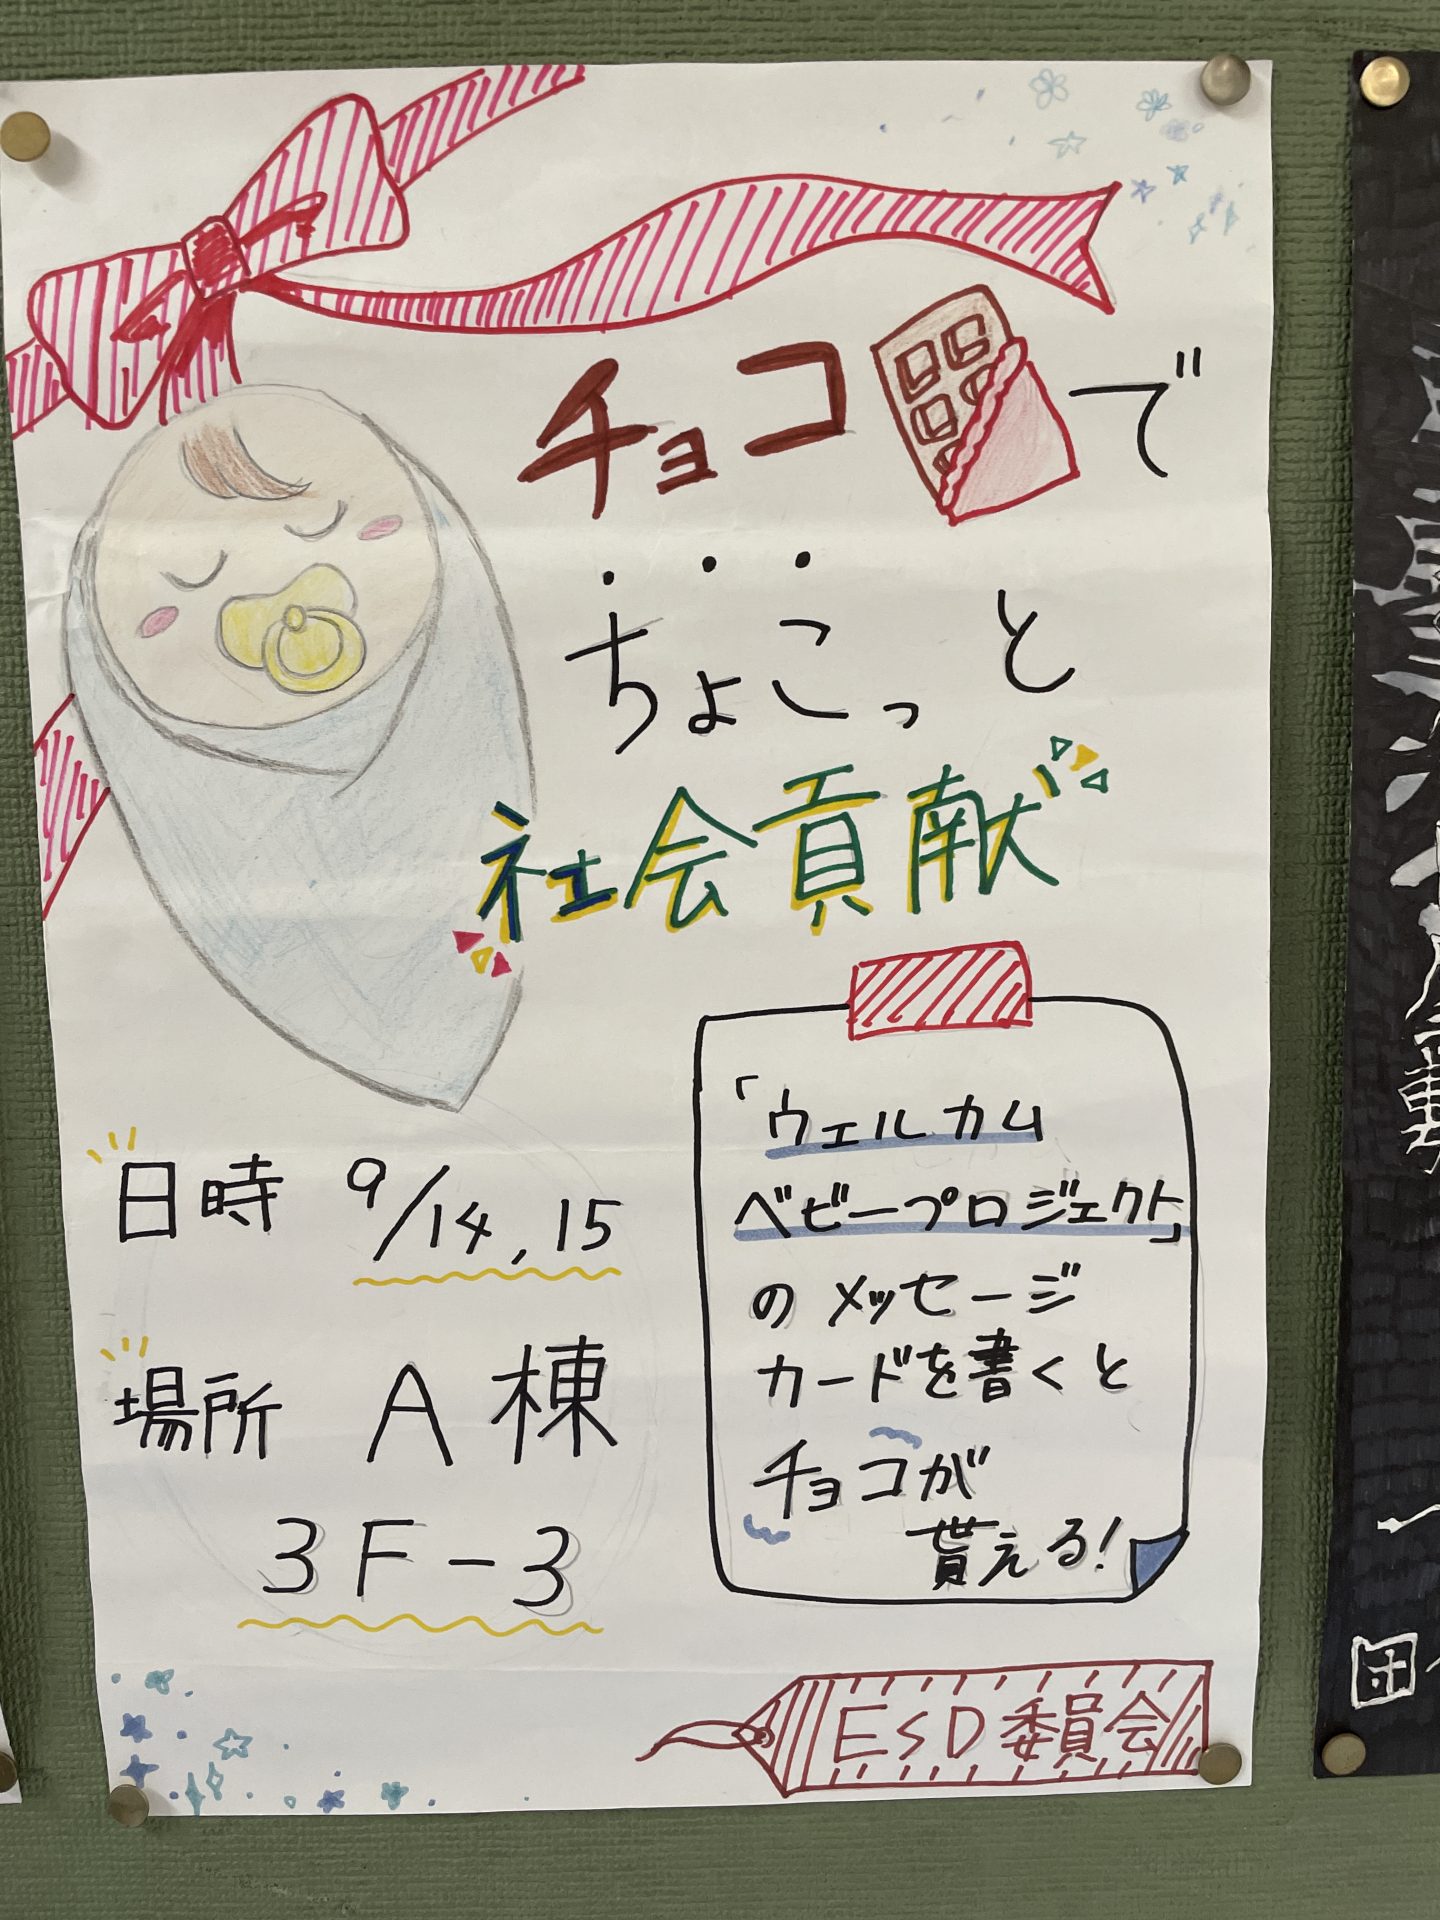 チョコで
ちょこっと
社会貢献
日時 9/14,15
場所 A棟
3F-3
「ウェルカム
ベビープロジェクト」
のメッセージ
カードを書くと
チョコが
貰える!
ESD委員会